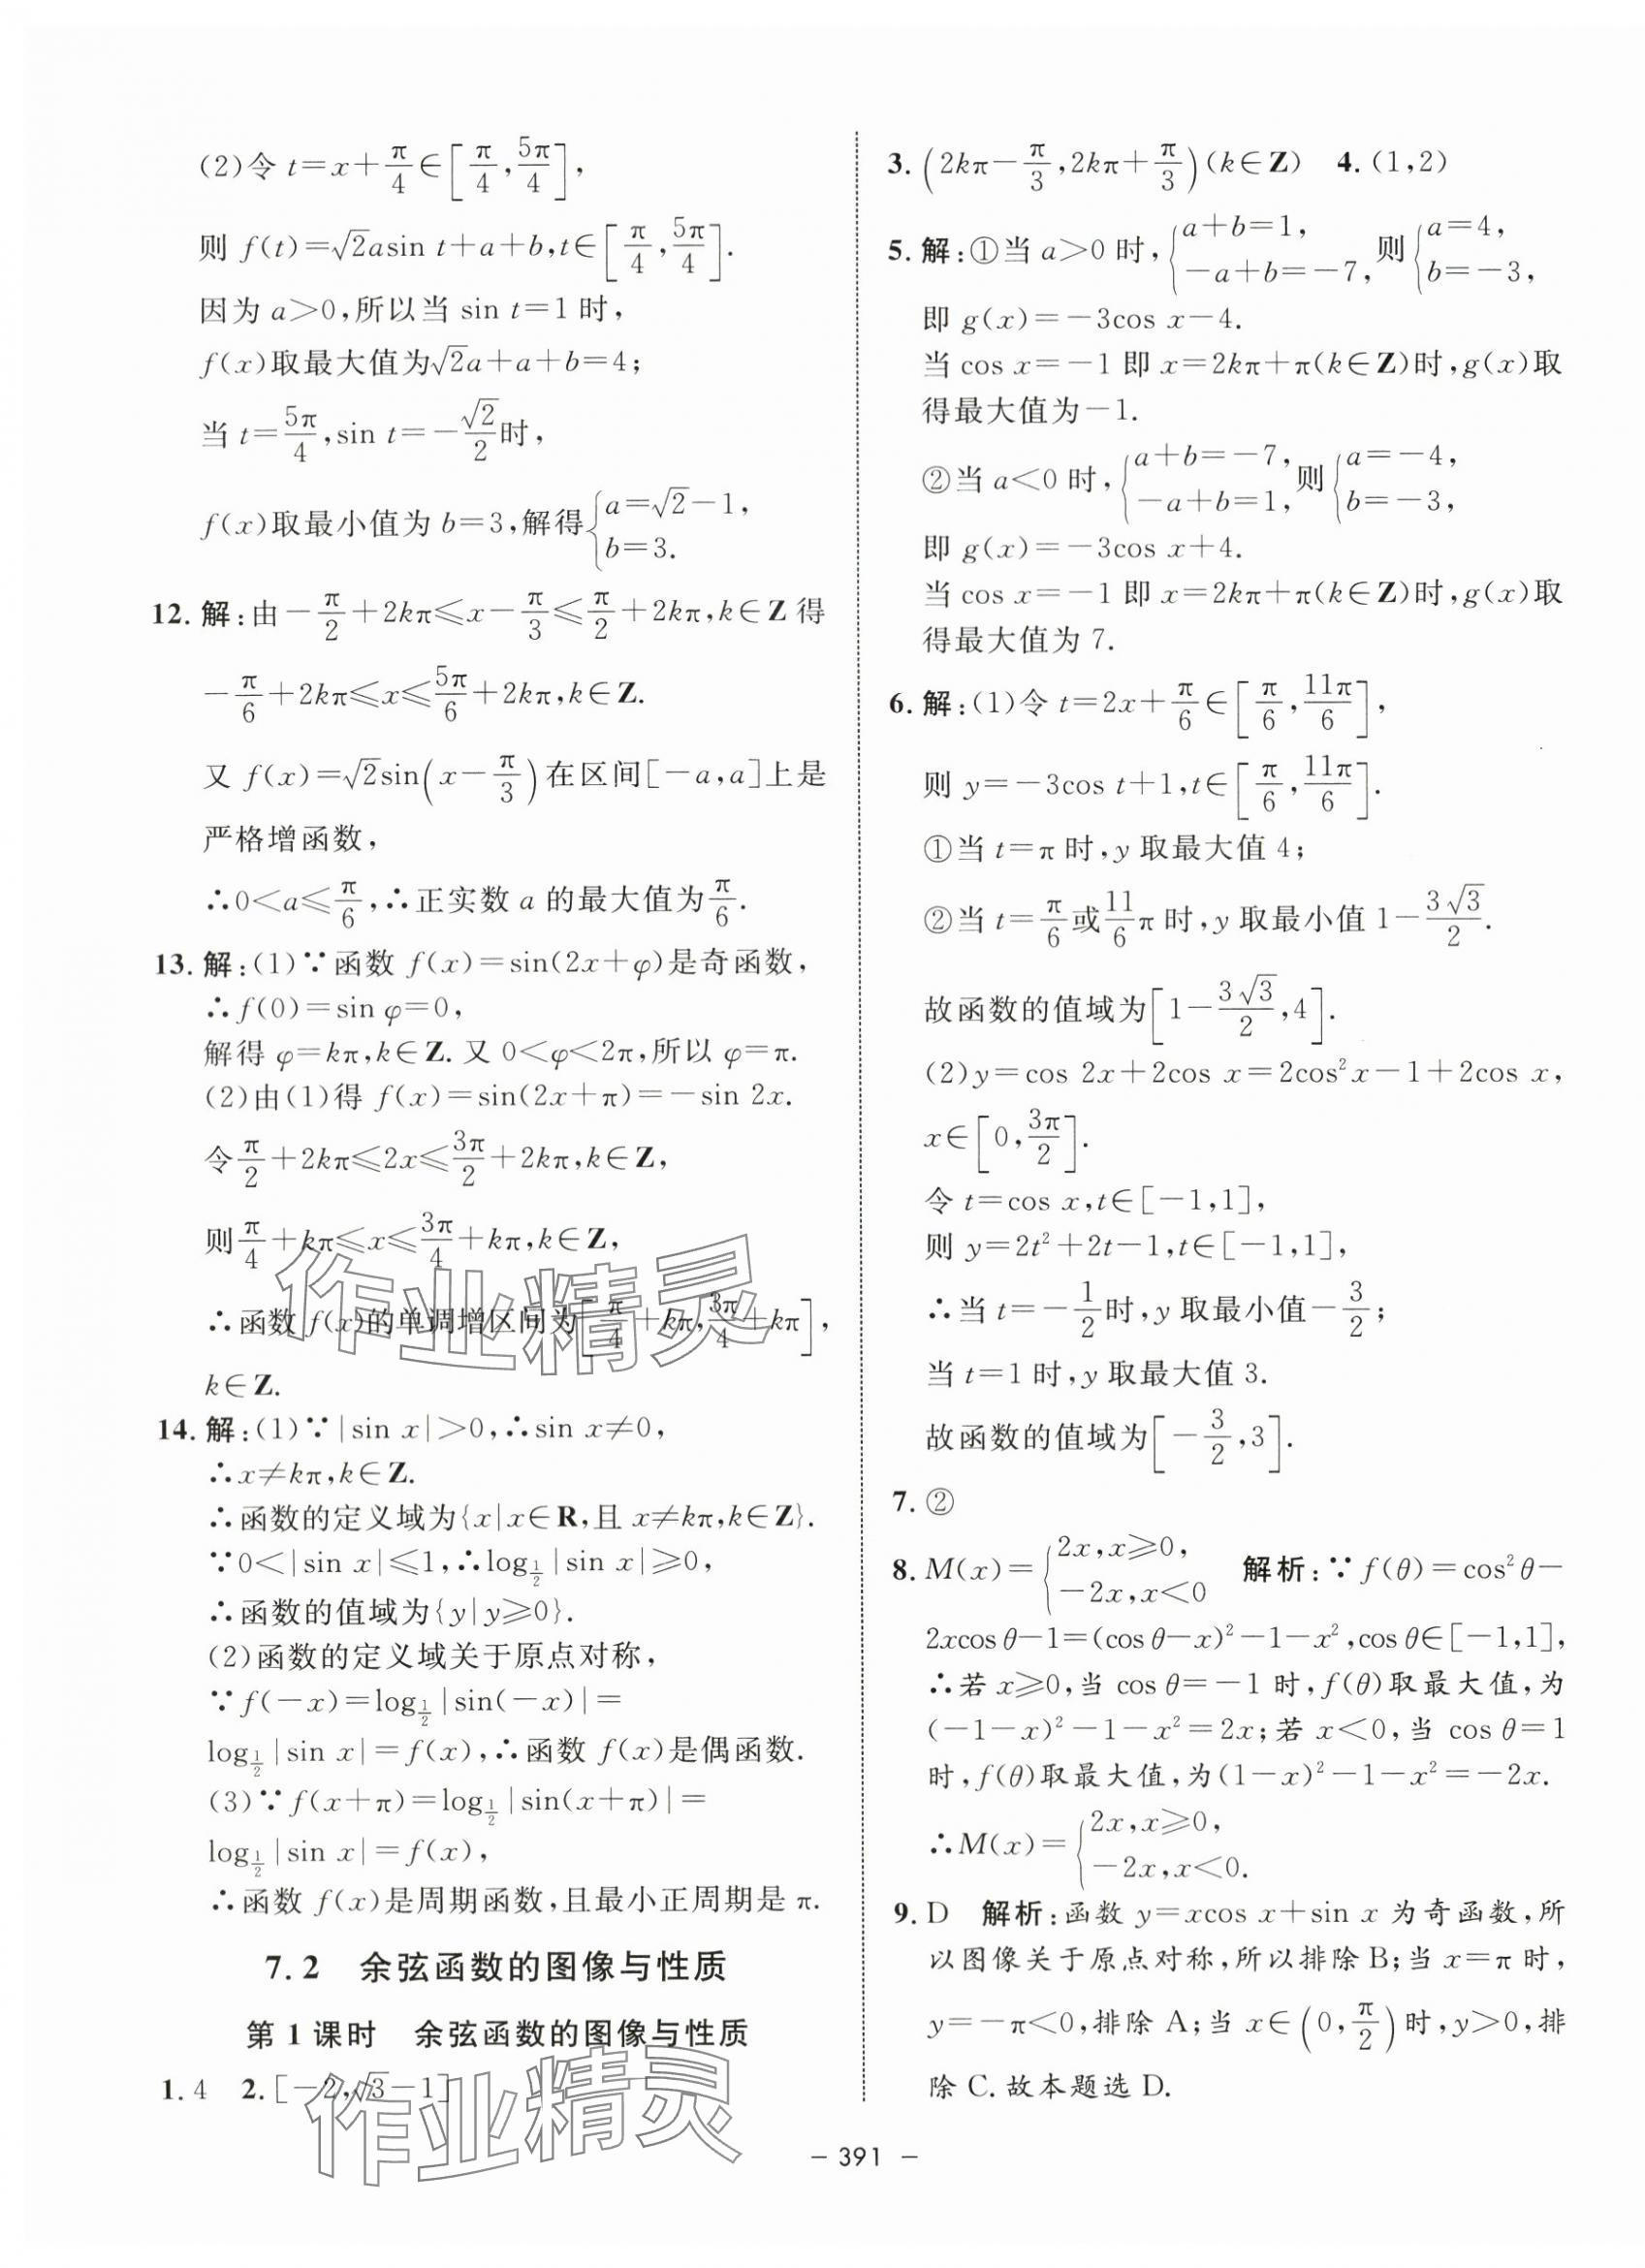 (2)令 t=x+π/4∈[π/4,5π/4],
则 f(t)=√2asin t+a+b,t∈[π/4,5π/4].
因为 a>0,所以当 sin t=1时,
f(x)取最大值为√2a+a+b=4;
当 t=5π/4,sin t=-√2/2时,
f(x)取最小值为 b=3,解得{a=√2-1, b=3.
12. 解:由-π/2+2kπ≤x-π/3≤π/2+2kπ,k∈Z得
-π/6+2kπ≤x≤5π/6+2kπ,k∈Z.
又 f(x)=√2sin(x-π/3)在区间[-a,a]上是
严格增函数,
∴0<a≤π/6,∴正实数 a 的最大值为π/6.
13. 解:(1)∵函数 f(x)=sin(2x+φ)是奇函数,
∴f(0)=sin φ=0,
解得 φ=kπ,k∈Z.又 0<φ<2π,所以 φ=π.
(2)由(1)得 f(x)=sin(2x+π)=-sin 2x.
令π/2+2kπ≤2x≤3π/2+2kπ,k∈Z,
则π/4+kπ≤x≤3π/4+kπ,k∈Z,
∴函数 f(x)的单调增区间为[π/4+kπ,3π/4+kπ],
k∈Z.
14. 解:(1)∵|sin x|>0,∴sin x≠0,
∴x≠kπ,k∈Z.
∴函数的定义域为{x|x∈R,且 x≠kπ,k∈Z}.
∵0<|sin x|≤1,∴log_{1/2}|sin x|≥0,
∴函数的值域为{y|y≥0}.
(2)函数的定义域关于原点对称,
∵f(-x)=log_{1/2}|sin(-x)|=
log_{1/2}|sin x|=f(x),∴函数 f(x)是偶函数.
(3)∵f(x+π)=log_{1/2}|sin(x+π)|=
log_{1/2}|sin x|=f(x),
∴函数 f(x)是周期函数,且最小正周期是 π.
7.2 余弦函数的图像与性质
第1课时 余弦函数的图像与性质
1. 4 2. [-2,√3-1]
3. (2kπ-π/3,2kπ+π/3)(k∈Z) 4. (1,2)
5. 解:①当 a>0 时,{a+b=1, -a+b=-7,则{a=4, b=-3,
即 g(x)=-3cos x-4.
当 cos x=-1 即 x=2kπ+π(k∈Z)时,g(x)取
得最大值为-1.
②当 a<0 时,{a+b=-7, -a+b=1,则{a=-4, b=-3,
即 g(x)=-3cos x+4.
当 cos x=-1 即 x=2kπ+π(k∈Z)时,g(x)取
得最大值为 7.
6. 解:(1)令 t=2x+π/6∈[π/6,11π/6],
则 y=-3cos t+1,t∈[π/6,11π/6].
①当 t=π 时,y 取最大值 4;
②当 t=π/6或11/6π时,y 取最小值 1-3√3/2.
故函数的值域为[1-3√3/2,4].
(2)y=cos 2x+2cos x=2cos²x-1+2cos x,
x∈[0,3π/2].
令 t=cos x,t∈[-1,1],
则 y=2t²+2t-1,t∈[-1,1],
∴当 t=-1/2时,y 取最小值-3/2;
当 t=1 时,y 取最大值 3.
故函数的值域为[-3/2,3].
7. ②
8. M(x)={2x,x≥0, -2x,x<0 解析:∵f(θ)=cos²θ-
2xcos θ-1=(cos θ-x)²-1-x²,cos θ∈[-1,1],
∴若 x≥0,当 cos θ=-1 时,f(θ)取最大值,为
(-1-x)²-1-x²=2x;若 x<0,当 cos θ=1
时,f(θ)取最大值,为(1-x)²-1-x²=-2x.
∴M(x)={2x,x≥0, -2x,x<0.
9. D 解析:函数 y=xcos x+sin x 为奇函数,所
以图像关于原点对称,所以排除 B;当 x=π 时,
y=-π<0,排除 A;当 x∈(0,π/2)时,y>0,排
除 C.故本题选 D.
- 391 -
作业精灵
作业精灵